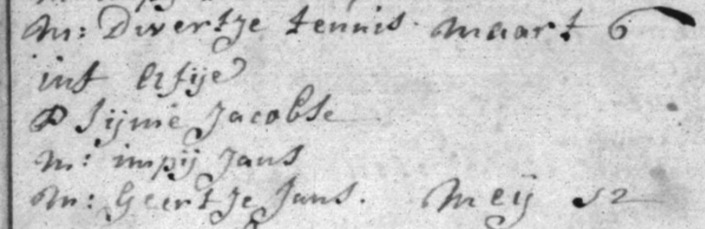 m: Divertje tennis. maart 6
int Eefije
P Sijme Jacobse
m: impij Jans
m: Geertje Jans. Meij 12